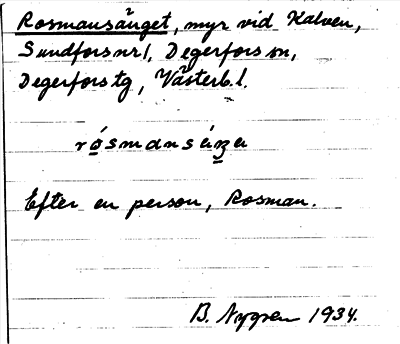 Rosmansänget, myr vid Kalven,
Sundfors nr 1, Degerfors sn,
Degerfors tg, Västerb. l.
Efter en person, Rosman.
B. Nygren 1934.